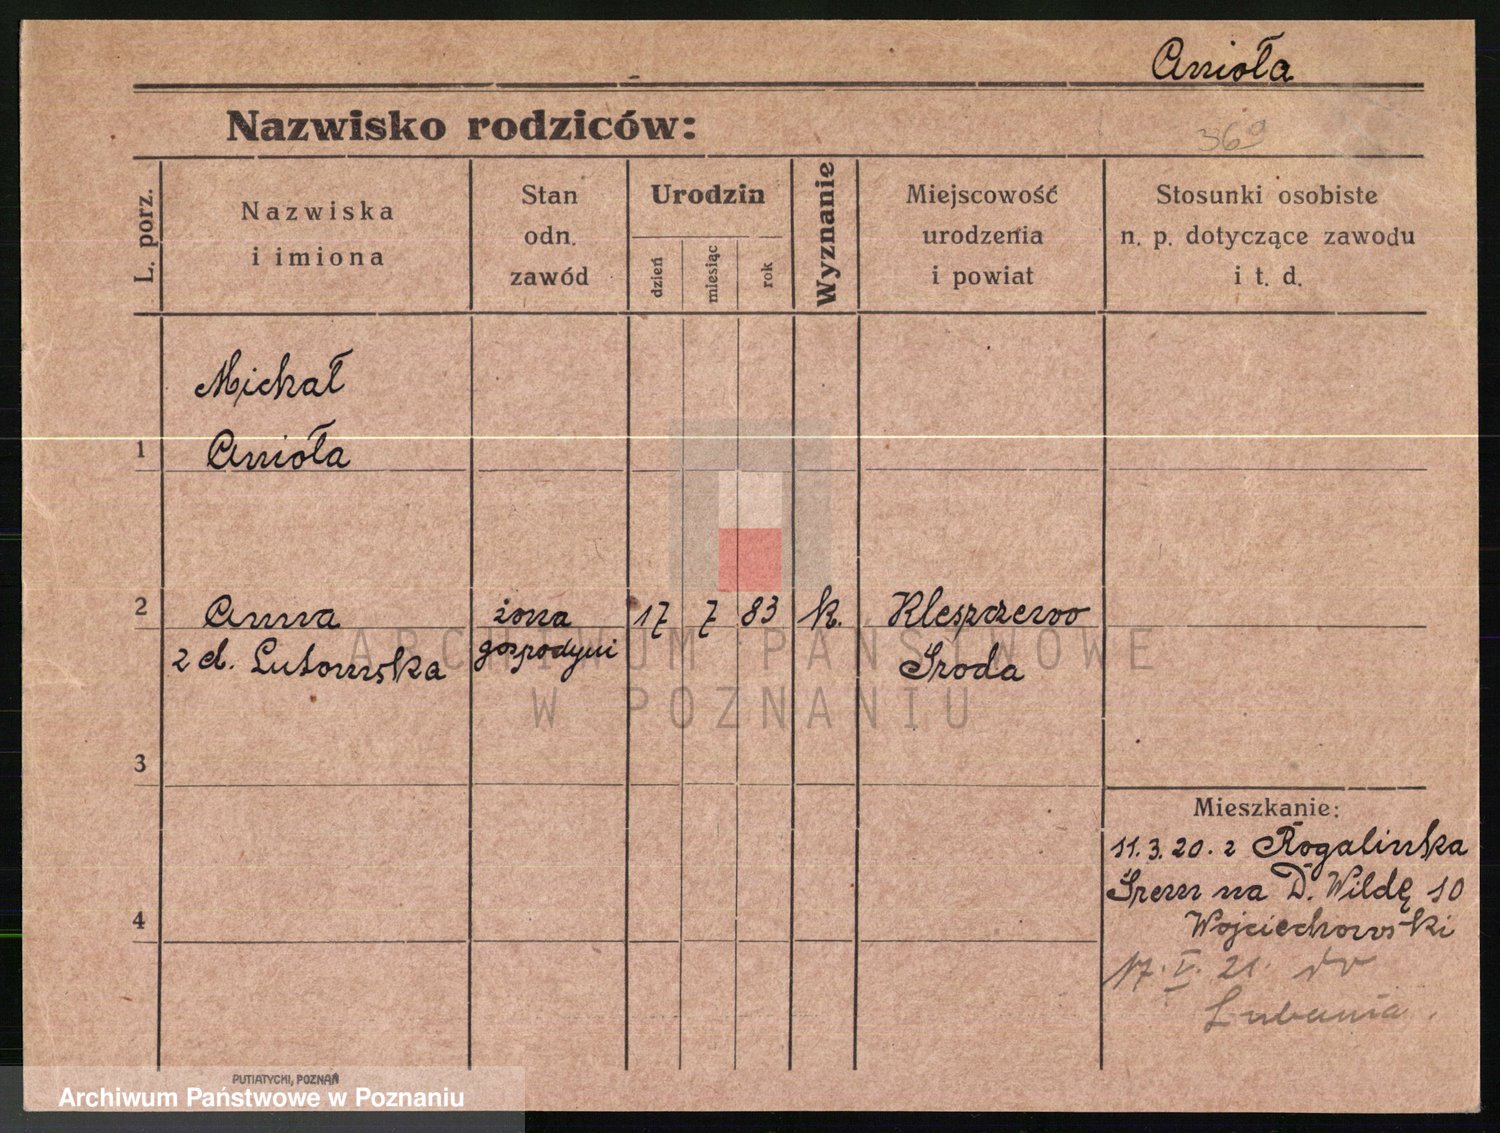 Anioła
Nazwisko rodziców:
36a
L. porz.
Nazwiska
i imiona
Stan
odn.
zawód
Urodzin
dzień
miesiąc
rok
Wyznanie
Miejscowość
urodzenia
i powiat
Stosunki osobiste
n. p. dotyczące zawodu
i t. d.
Michał
1 Anioła
2 Anna żona 17 7 83 k. Kleszczewo
z d. Lutomska gospodyni Środa
ARCHIWUM PAŃSTWOWE
W POZNANIU
3
Mieszkanie:
11.3.20. z Rogalinka
Śrem na D. Wildę 10
4 Wojciechowski
17. V. 21. do
Lubania.
PUTIATYCKI, POZNAŃ
Archiwum Państwowe w Poznaniu